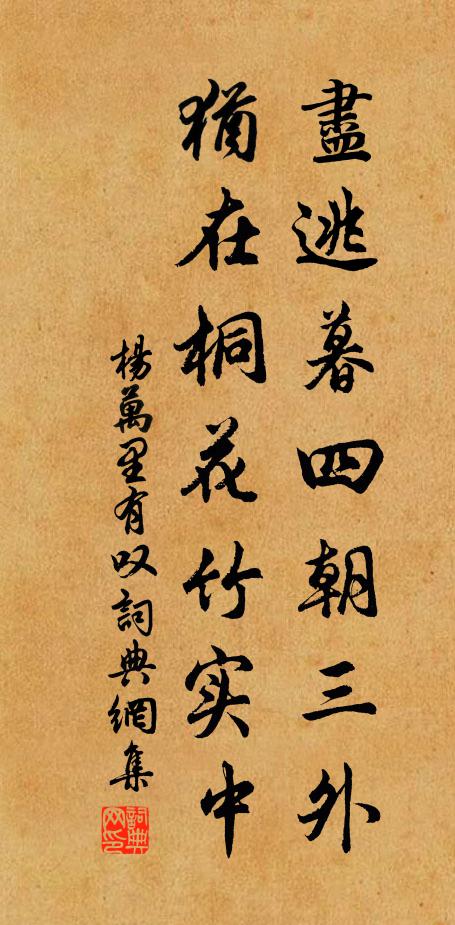 盡逃暮四朝三外
猶在桐花竹实中
楊萬里有叹詞典網集
詞典网印